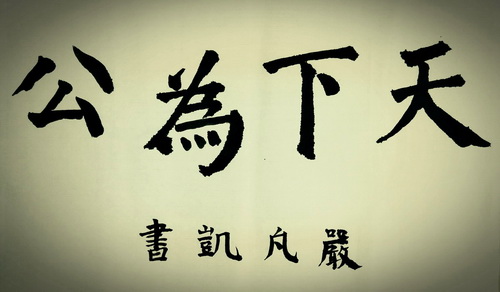 天下為公
嚴凡凱書